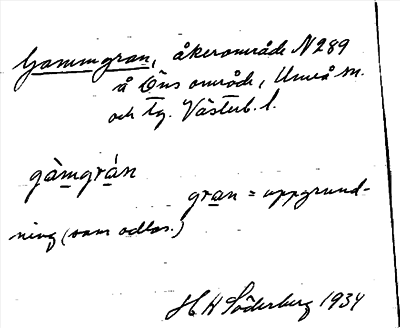 Gammgran, åkerområde N 289
å Öns område, Umeå sn.
och tg. Västerb. l.
gàmgrán
gran = uppgrund-
ning (som odlas.)
H H Söderberg 1934